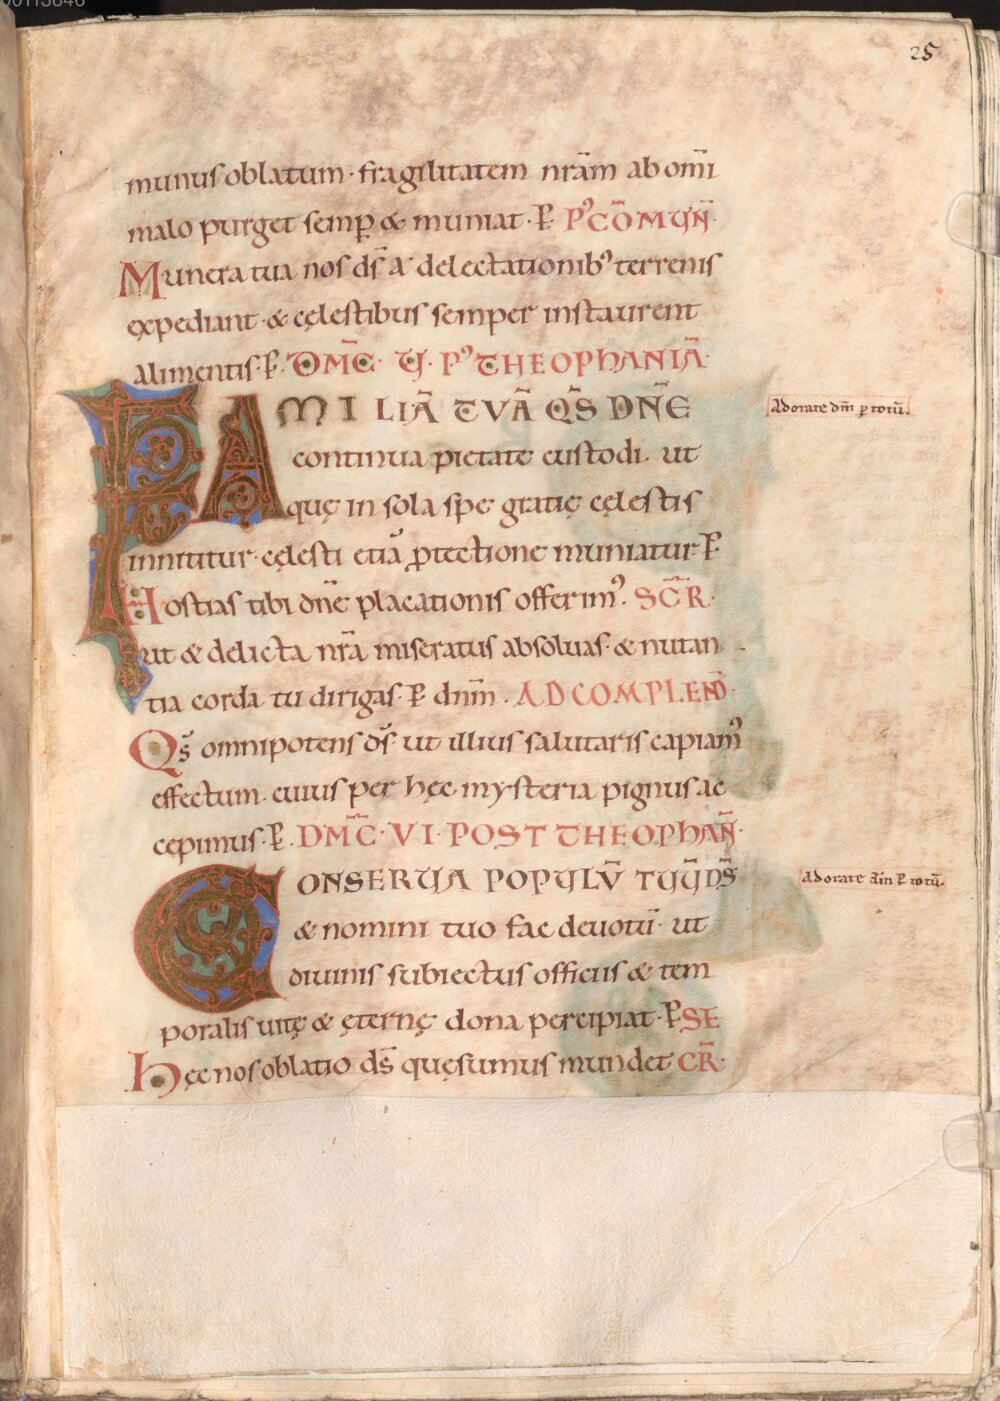 25
munus oblatum · fragilitatem nr̄am ab om̄i
malo purget semꝑ & muniat · P̄ · Pꝰ CŌMUN̄
Munera tua nos ds̄ a delectationibꝰ terrenis
expediant · & cęlestibus semper instaurent
alimentis · P̄ · DM̄C · V · Pꝰ THEOPHANIĀ ·
FAMILIĀ TVĀ Q̄S DN̄E
continua pietate custodi · ut
quę in sola spe gratię cęlestis
innititur · cęlesti etiā ꝓtectione muniatur · P̄
Hostias tibi dn̄e placationis offerimꝰ · SC̄R ·
ut & delicta nr̄a miseratus absoluas · & nutan
tia corda tu dirigas · P̄ dnm̄ · AD COMPLEN̄D ·
Qs̄ omnipotens ds̄ · ut illius salutaris capiamꝰ
effectum · cuius per hęc mysteria pignus ac
cepimus · P̄ · DM̄C · VI · POST THEOPHAN̄ ·
CONSERUA POPULV̄ TUŪ DS̄
& nomini tuo fac deuotū · ut
diuinis subiectus officiis & tem
poralis uitę & ęternę dona percipiat · P̄ SE
Hęc nos oblatio ds̄ quęsumus mundet CR̄ ·
Adorate dm̄ ꝑ totū ·
Adorate dm̄ P̄ totū ·